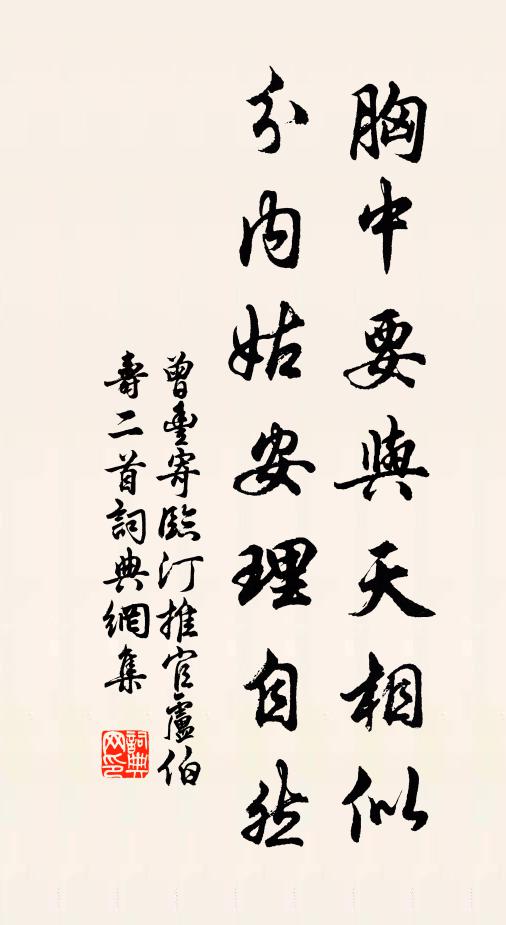 胸中要與天相似
分內姑安理自然
曾豐寄臨汀推官盧伯
壽二首詞典網集
詞典网印